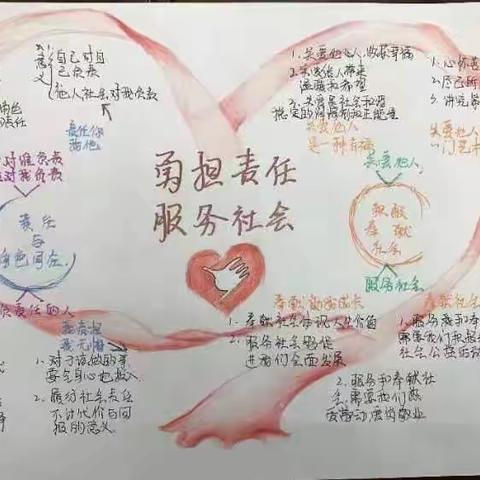 自己对自
己负责
他人社会对我负责
责任你
我他
对谁负责
对我负责
责任
与
角色同在
负责任的人
我承担
我无悔
1. 对于该做的事
要全身心地投入
2. 履行社会责任
不计代价与回
报的意义
勇担责任
服务社会
1. 关爱他人,收获幸福
2. 关爱他人带来
温暖和希望
3. 关爱是社会和谐
稳定的润滑剂和正能量
关爱他人
是一种幸福
关爱他人
积极
奉献
社会
服务社会
1. 心怀善
2. 尽己所
3. 讲究策
关爱他人
一门艺术
奉献助我成长
1. 奉献社会体现人生价值
2. 服务社会促
进我们全面发展
奉献社会
1. 服务和奉
需要我们积极
社会公益活动
2. 服务和奉献社
会,需要我们热
爱劳动,爱岗敬业